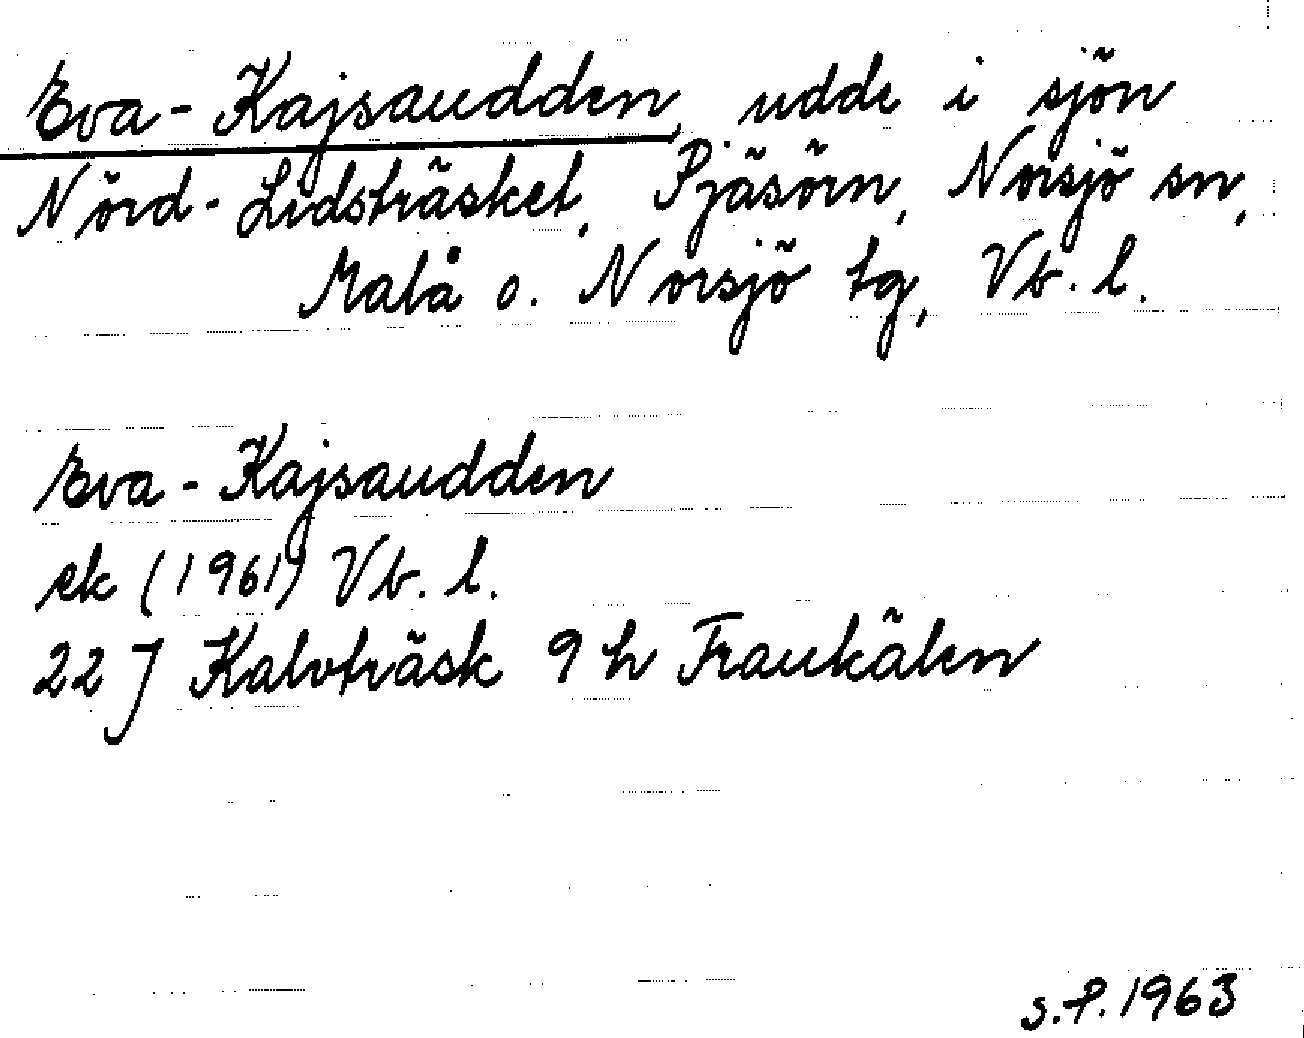 Eva-Kajsaudden, udde i sjön
Nörd-Lidsträsket, Pjäsörn, Norsjö sn,
Malå o. Norsjö tg, Vb. l.
Eva-Kajsaudden
ek (1961) Vb. l.
22 J Kalvträsk 9 h Fraukälen
s.P. 1963